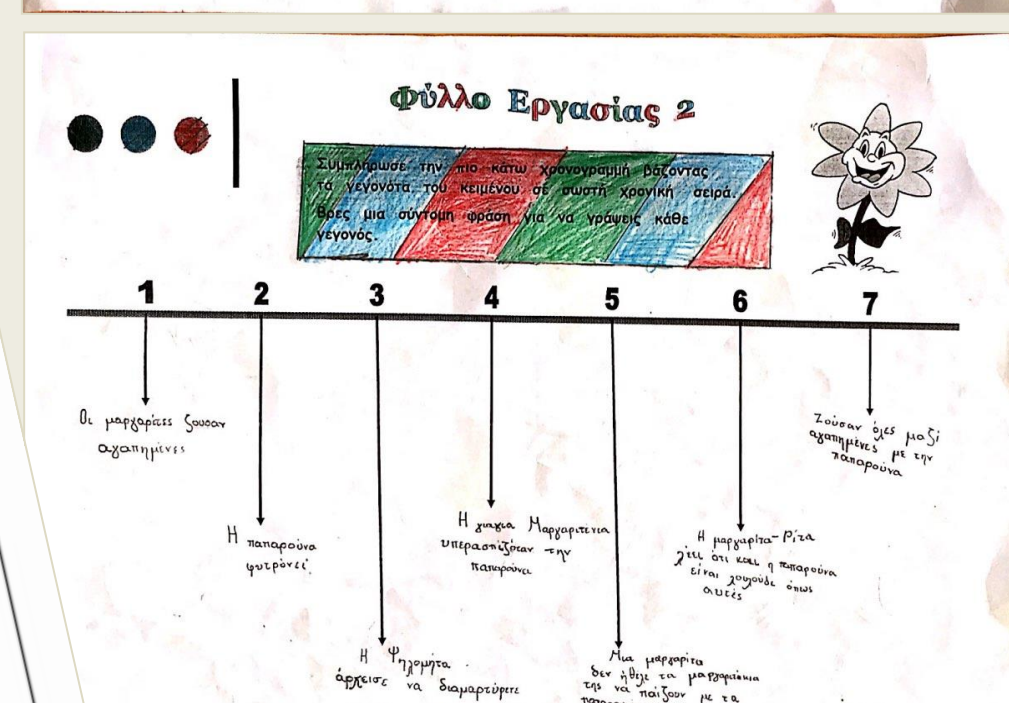 Φύλλο Εργασίας 2
Συμπλήρωσε την πιο κάτω χρονογραμμή βάζοντας
τα γεγονότα του κειμένου σε σωστή χρονική σειρά.
Βρες μια σύντομη φράση για να γράψεις κάθε
γεγονός.
1 2 3 4 5 6 7
Οι μαργαρίτες ζουσαν
αγαπημένες
Η παπαρούνα
φυτρόνει.
Η Ψηλομύτα
άρχεισε να διαμαρτύρετε
Η γιαγια Μαργαριτενια
υπερασπιζόταν την
παπαρούνα
Μια μαργαρίτα
δεν ήθελε τα μαργαριτάκια
της να παίζουν με τα
Η μαργαρίτα-Ρίτα
λέει ότι και η παπαρούνα
είναι λουλούδι όπως
αυτές
Ζούσαν όλες μαζί
αγαπημένες με την
παπαρούνα